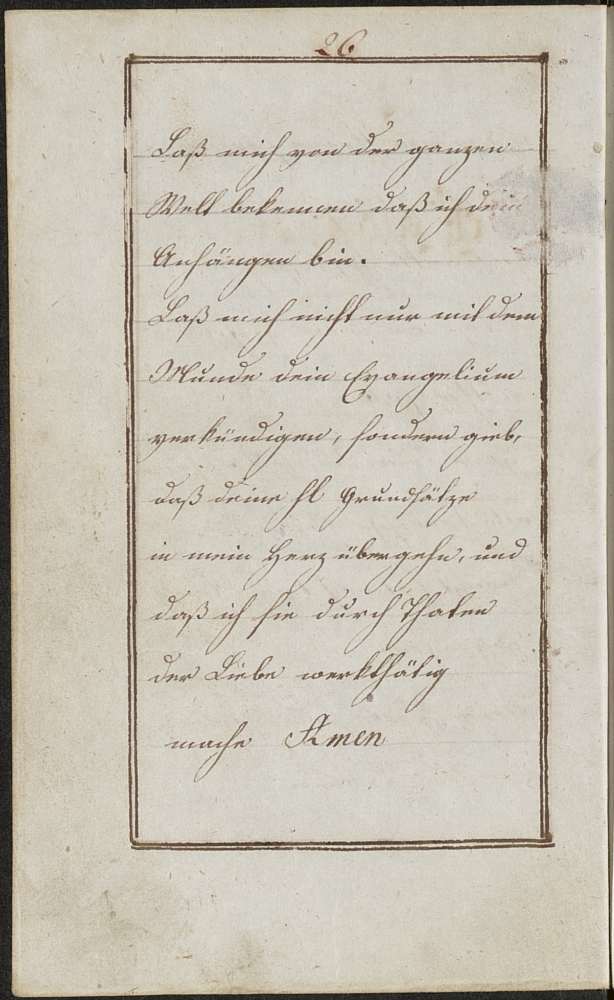 26
Laß mich von der ganzen
Welt bekennen daß ich dein
Anhängen bin.
Laß mich nicht nur mit dem
Munde dein Evangelium
verkündigen, sondern gieb,
daß deine hl Grundsätze
in mein Herz übergehn, und
daß ich sie durch Thaten
der Liebe werkthätig
mache Amen